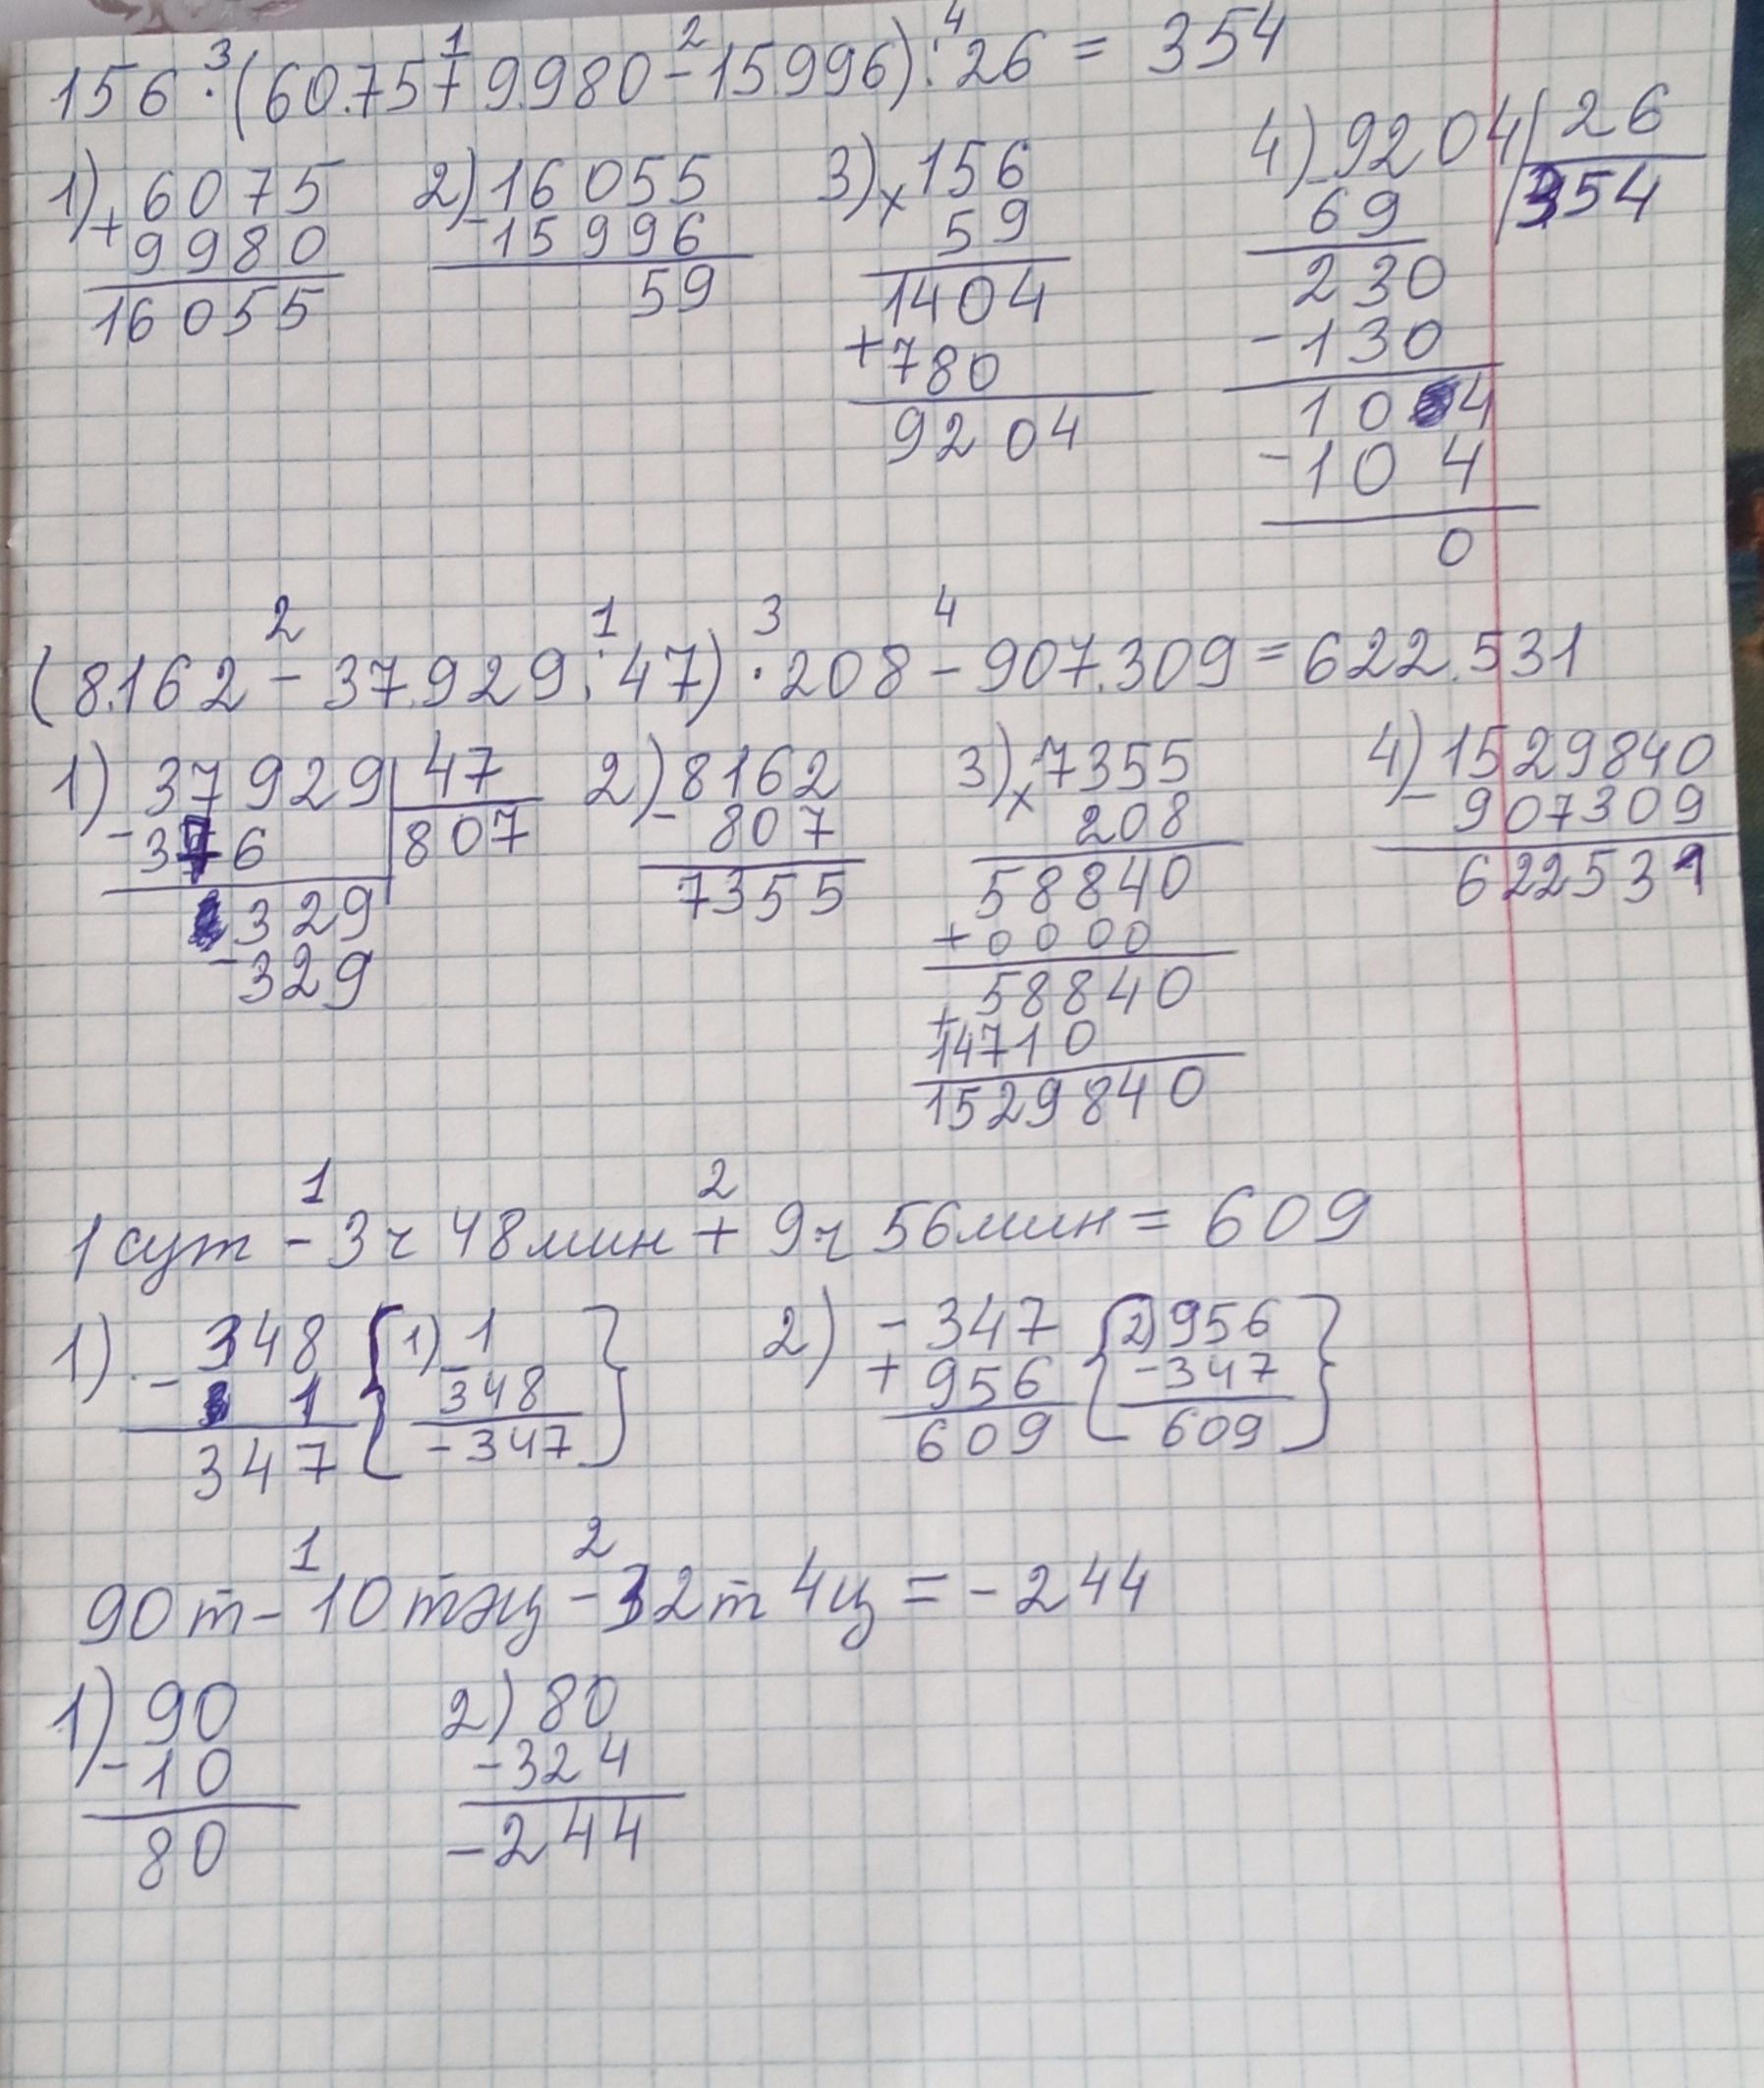 156 ·³ (6075 +¹ 9980 -² 15996) :⁴ 26 = 354
1) + 6075
9980
16055
2) 16055
- 15996
59
3) × 156
59
1404
+ 780
9204
4) - 9204 | 26
69 | 354
230
- 130
104
- 104
0
(8.162 -² 37.929 :¹ 47) ·³ 208 -⁴ 907.309 = 622.531
1) 37929 | 47
- 376 | 807
329
- 329
2) 8162
- 807
7355
3) × 7355
208
58840
+ 0000
58840
+ 14710
1529840
4) 1529840
- 907309
622531
1 сут -¹ 3ч 48мин +² 9ч 56мин = 609
1) - 348
1
347
{ 1) 1
- 348
- 347 }
2) - 347
+ 956
609
{ 2) 956
- 347
609 }
90т -¹ 10т -² 32т 4ц = -244
1) 90
- 10
80
2) 80
- 324
- 244